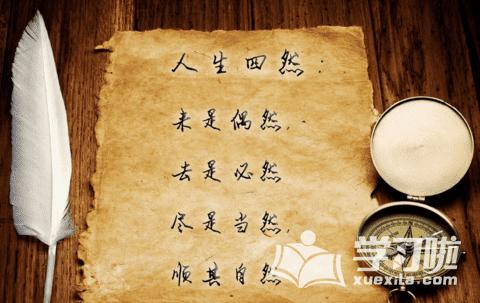 人生四然：
来是偶然，
去是必然
尽是当然，
顺其自然
学习啦
xuexila.com